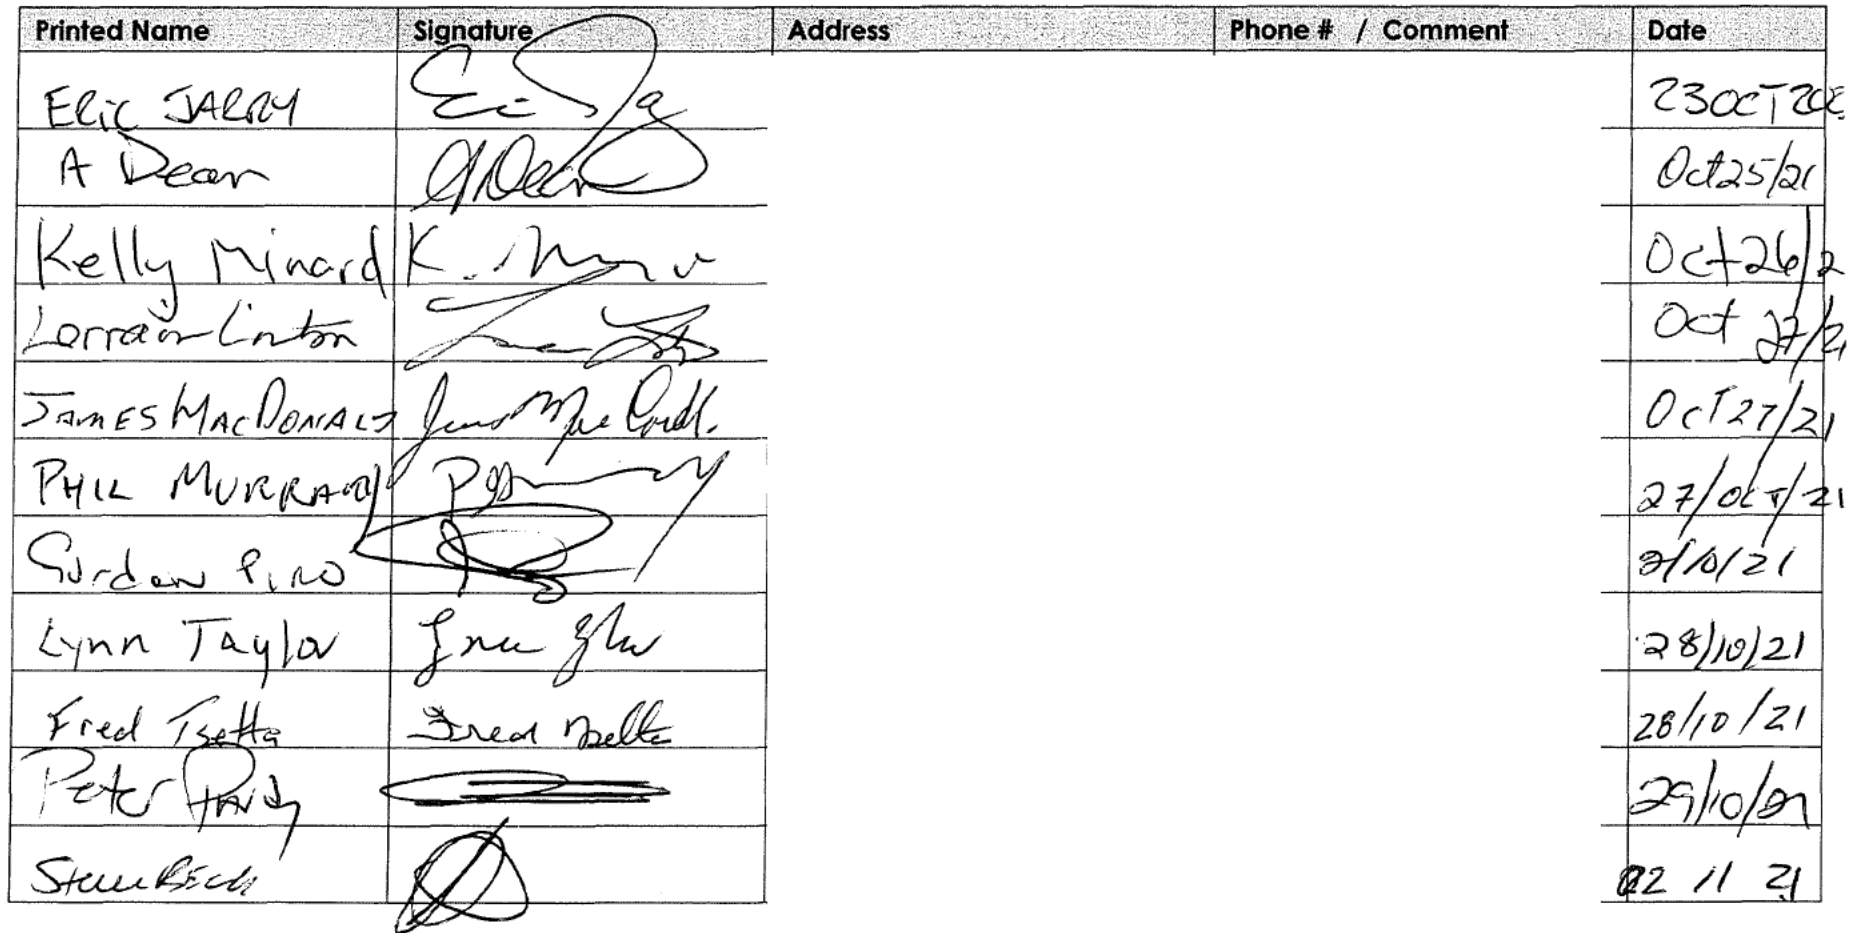 Printed Name Signature Address Phone # / Comment Date
ERIC JARRY 23OCT202
A Dean A Dean Oct25/21
Kelly Minard K. Oct26/2
Lorrain Linton Oct 27/21
JAMES MACDONALD James MacDonald. OCT27/21
PHIL MURRAY 27/OCT/21
Gordon Piro /10/21
Lynn Taylor 28/10/21
Fred Tsetta Fred Tsetta 28/10/21
Peter 29/10/21
22 11 21